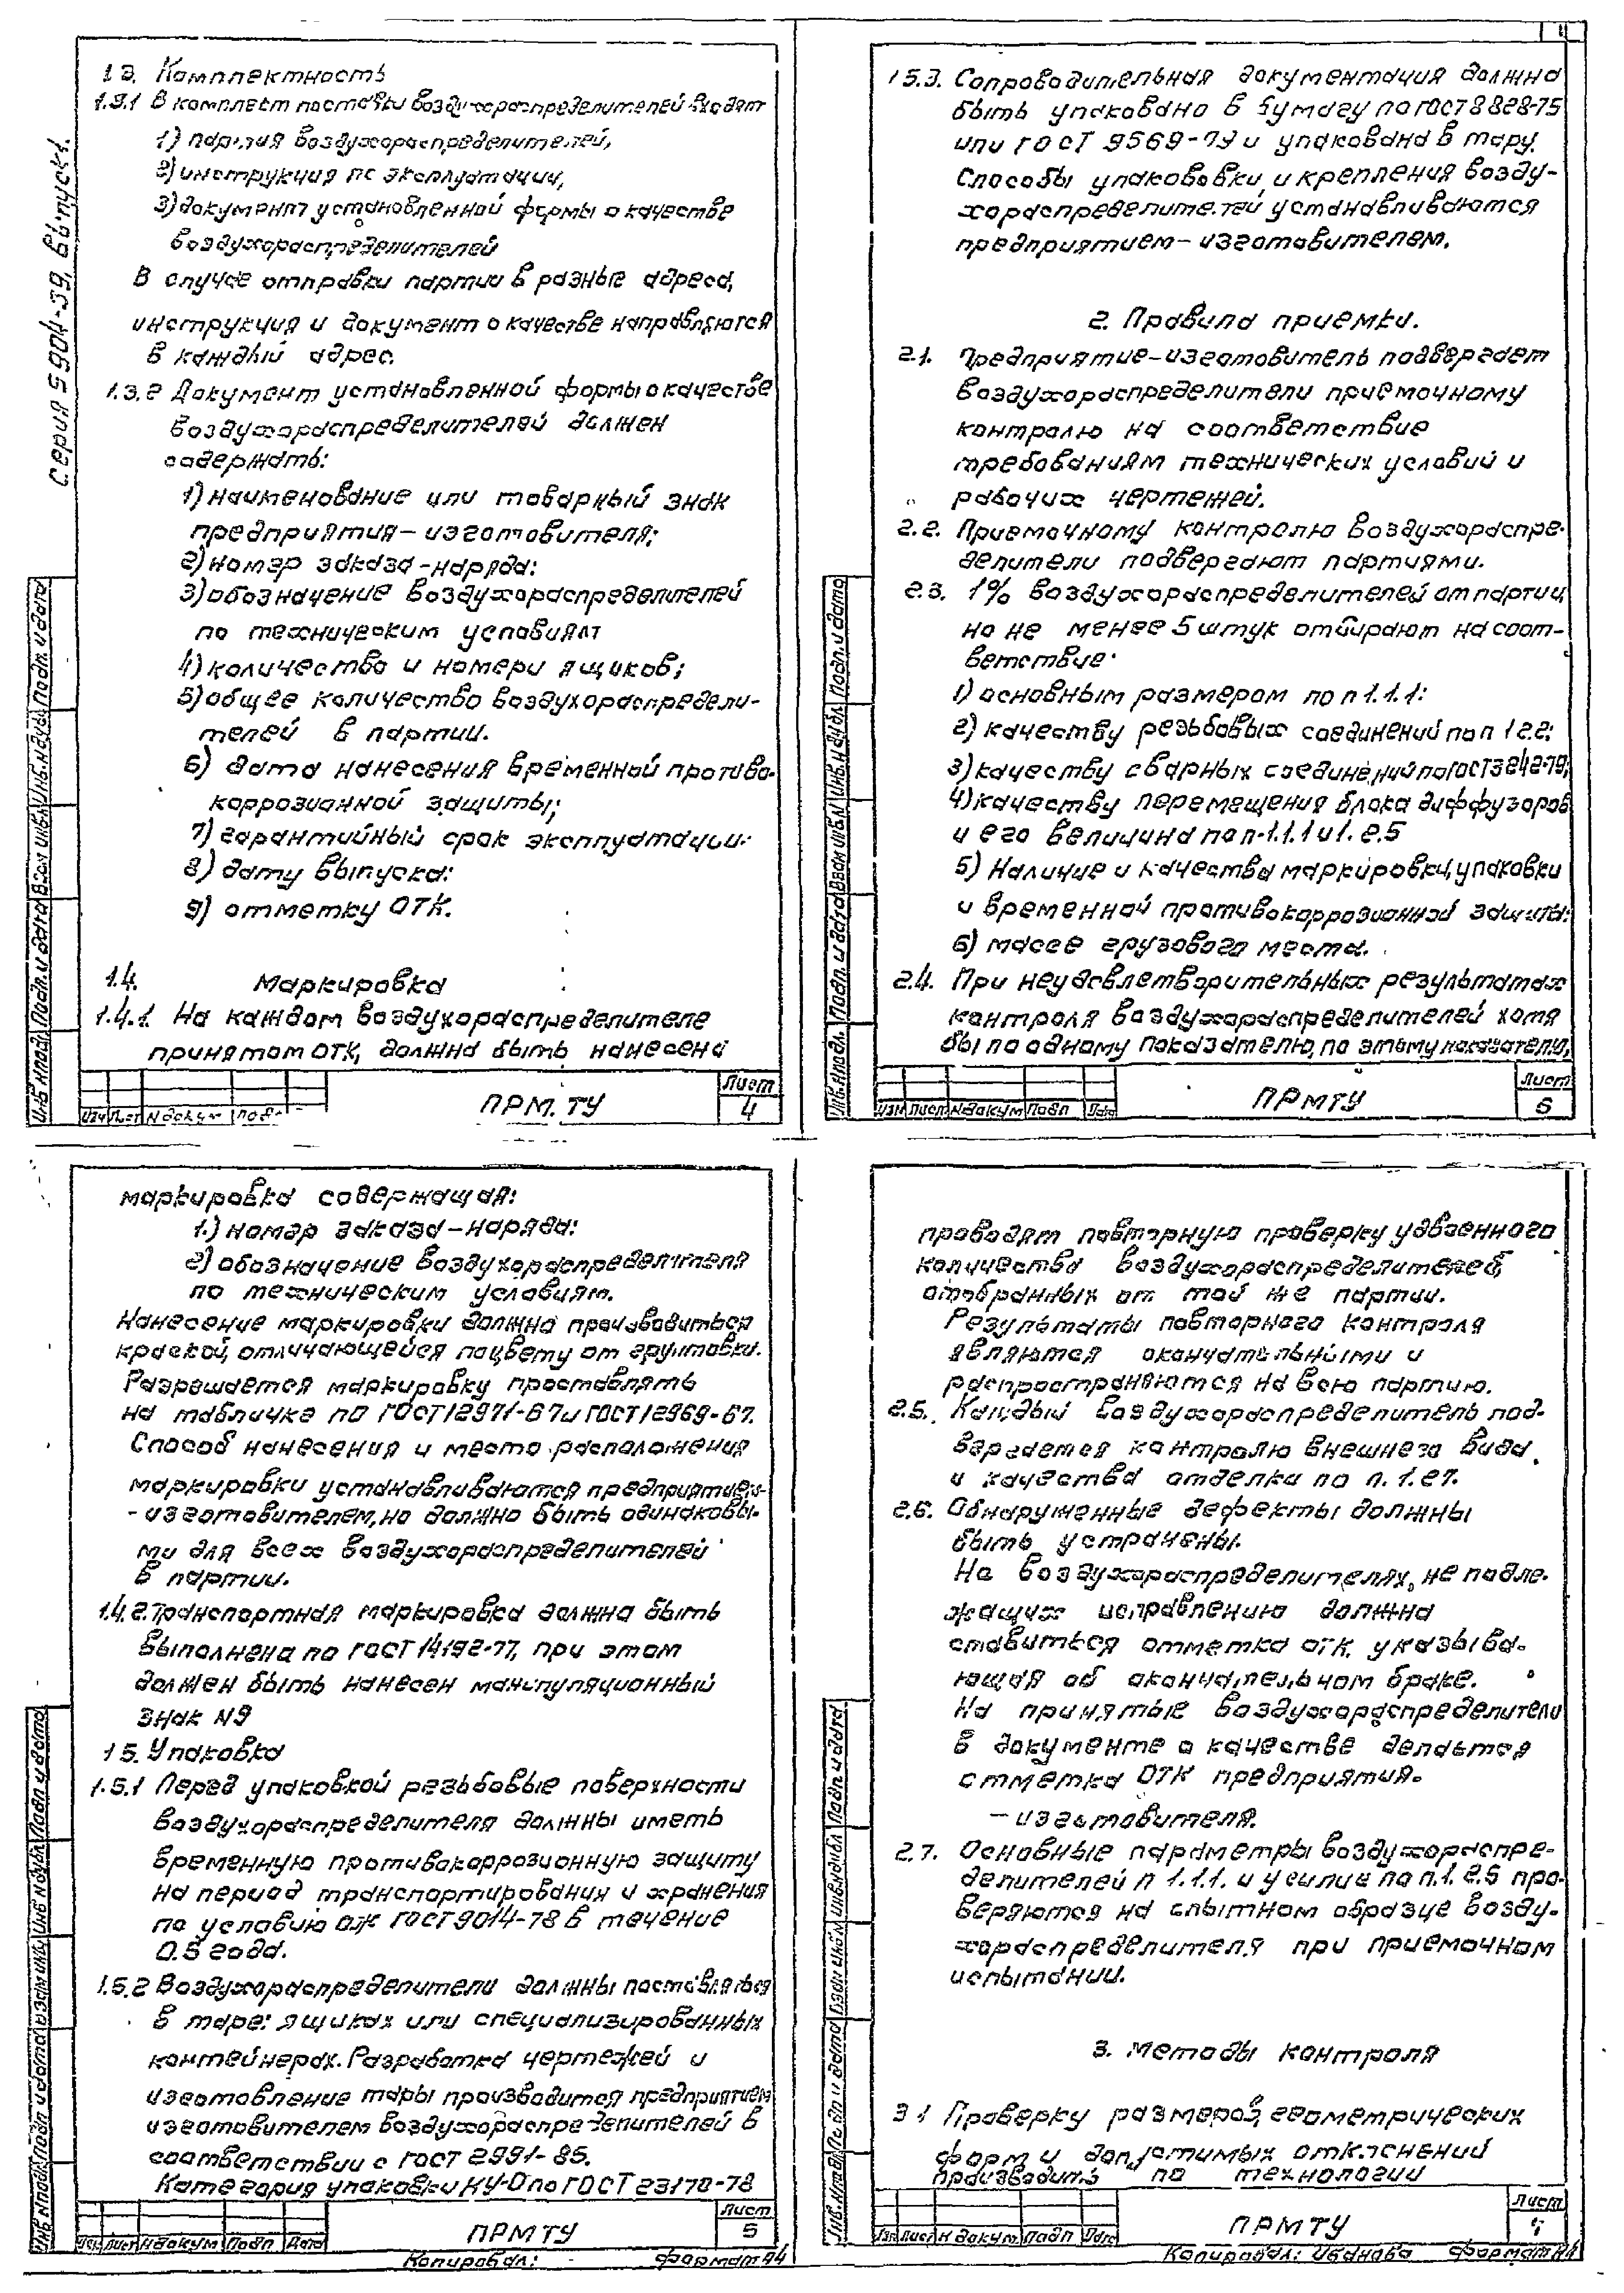 Серия 5.904-39, Выпуск 1.
1.3. Комплектность
1.3.1 В комплект поставки воздухораспределителей входят
1) партия воздухораспределителей,
2) инструкция по эксплуатации,
3) документ установленной формы о качестве
воздухораспределителей
В случае отправки партии в разные адреса,
инструкция и документ о качестве направляются
в каждый адрес.
1.3.2 Документ установленной формы о качестве
воздухораспределителей должен
содержать:
1) наименование или товарный знак
предприятия-изготовителя;
2) номер заказа-наряда:
3) обозначение воздухораспределителей
по техническим условиям
4) количество и номери ящиков;
5) общее количество воздухораспредели-
телей в партии.
6) дата нанесения временной противо-
коррозионной защиты;
7) гарантийный срок эксплуатации:
8) дату выпуска:
9) отметку ОТК.
1.4. Маркировка
1.4.1. На каждом воздухораспределителе
принятом ОТК, должна быть нанесена
Изм Лист N докум Подп
ПРМ. ТУ
Лист
4
Инв. N подл. Подп. и дата Взам инв. N Инв. N дубл. Подп. и дата
1.5.3. Сопроводительная документация должна
быть упакована в бумагу по ГОСТ 8828-75
или ГОСТ 9569-79 и упакована в тару.
Способы упаковки и крепления возду-
хораспределителей устанавливаются
предприятием-изготовителем.
2. Правила приемки.
2.1. Предприятие-изготовитель подвергает
воздухораспределители приемочному
контролю на соответствие
требованиям технических условий и
рабочих чертежей.
2.2. Приемочному контролю воздухораспре-
делители подвергают партиями.
2.3. 1% воздухораспределителей от партии,
но не менее 5 штук отбирают на соот-
ветствие:
1) основным размерам по п 1.1.1:
2) качеству резьбовых соединений по п 1.2.2;
3) качеству сварных соединений по ГОСТ 3242-79;
4) качеству перемещения блока диффузоров
и его величина по п-1.1.1 и 1.2.5
5) Наличие и качества маркировки, упаковки
и временной противокоррозионной защиты:
6) массе грузового места.
2.4. При неудовлетворительных результатах
контроля воздухораспределителей хотя
бы по одному показателю, по этому показателю,
Изм Лист N докум Подп Дата
ПРМТУ
Лист
6
Инв. N подл. Подп. и дата Взам инв. N Инв. N дубл. Подп. и дата
маркировка содержащая:
1.) номер заказа-наряда:
2) обозначение воздухораспределителя
по техническим условиям.
Нанесение маркировки должна производиться
краской, отличающейся по цвету от грунтовки.
Разрешается маркировку проставлять
на табличке по ГОСТ 12971-67 и ГОСТ 12969-67.
Способ нанесения и место расположения
маркировки устанавливаются предприятием-
-изготовителем, но должно быть одинаковы-
ми для всех воздухораспределителей
в партии.
1.4.2. Транспортная маркировка должна быть
выполнена по ГОСТ 14192-77, при этом
должен быть нанесен манипуляционный
знак N9
1.5. Упаковка
1.5.1 Перед упаковкой резьбовые поверхности
воздухораспределителя должны иметь
временную противокоррозионную защиту
на период транспортирования и хранения
по условию ОЖ ГОСТ 9014-78 в течение
0.5 года.
1.5.2 Воздухораспределители должны поставляться
в таре: ящиках или специализированных
контейнерах. Разработка чертежей и
изготовление тары производится предприятием
изготовителем воздухораспределителей в
соответствии с ГОСТ 2991-85.
Категория упаковки КУ-0 по ГОСТ 23170-78
Изм Лист N докум Подп Дата
ПРМТУ
Лист
5
Копировал: Формат А4
Инв. N подл. Подп и дата Взам инв. Инв. N дубл. Подп. и дата
проводят повторную проверку удвоенного
количества воздухораспределителей,
отобранных от той же партии.
Результаты повторного контроля
являются окончательными и
распространяются на всю партию.
2.5. Каждый воздухораспределитель под-
вергается контролю внешнего вида
и качества отделки по п. 1.2.7.
2.6. Обнаруженные дефекты должны
быть устранены.
На воздухораспределителях, не подле-
жащих исправлению должна
ставиться отметка ОТК, указыва-
ющая об окончательном браке.
На принятые воздухораспределители
в документе о качестве делается
отметка ОТК предприятия-
-изготовителя.
2.7. Основные параметры воздухораспре-
делителей п 1.1.1. и усилие по п.1.2.5 про-
веряются на опытном образце возду-
хораспределителя при приемочном
испытании.
3. Методы контроля
3.1 Проверку размеров, геометрических
форм и допустимых отклонений
производить по технологии
Изм Лист N докум Подп Дата
ПРМТУ
Лист
7
Копировал: Иванова Формат А4
Инв. N подл. Подп и дата Взам инв. N Инв. N дубл. Подп. и дата